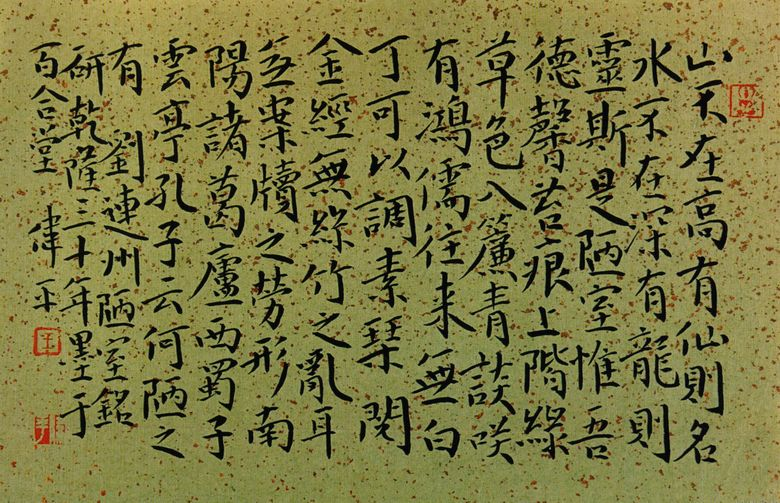 山不在高有仙則名
水不在深有龍則
靈斯是陋室惟吾
德馨苔痕上階綠
草色入簾青談咲
有鴻儒往来無白
丁可以調素琴閱
金經無絲竹之亂耳
无案牘之勞形南
陽諸葛廬西蜀子
雲亭孔子云何陋之
有 劉連州陋室銘
研乾隆三十年墨于
百合堂 偉平
王